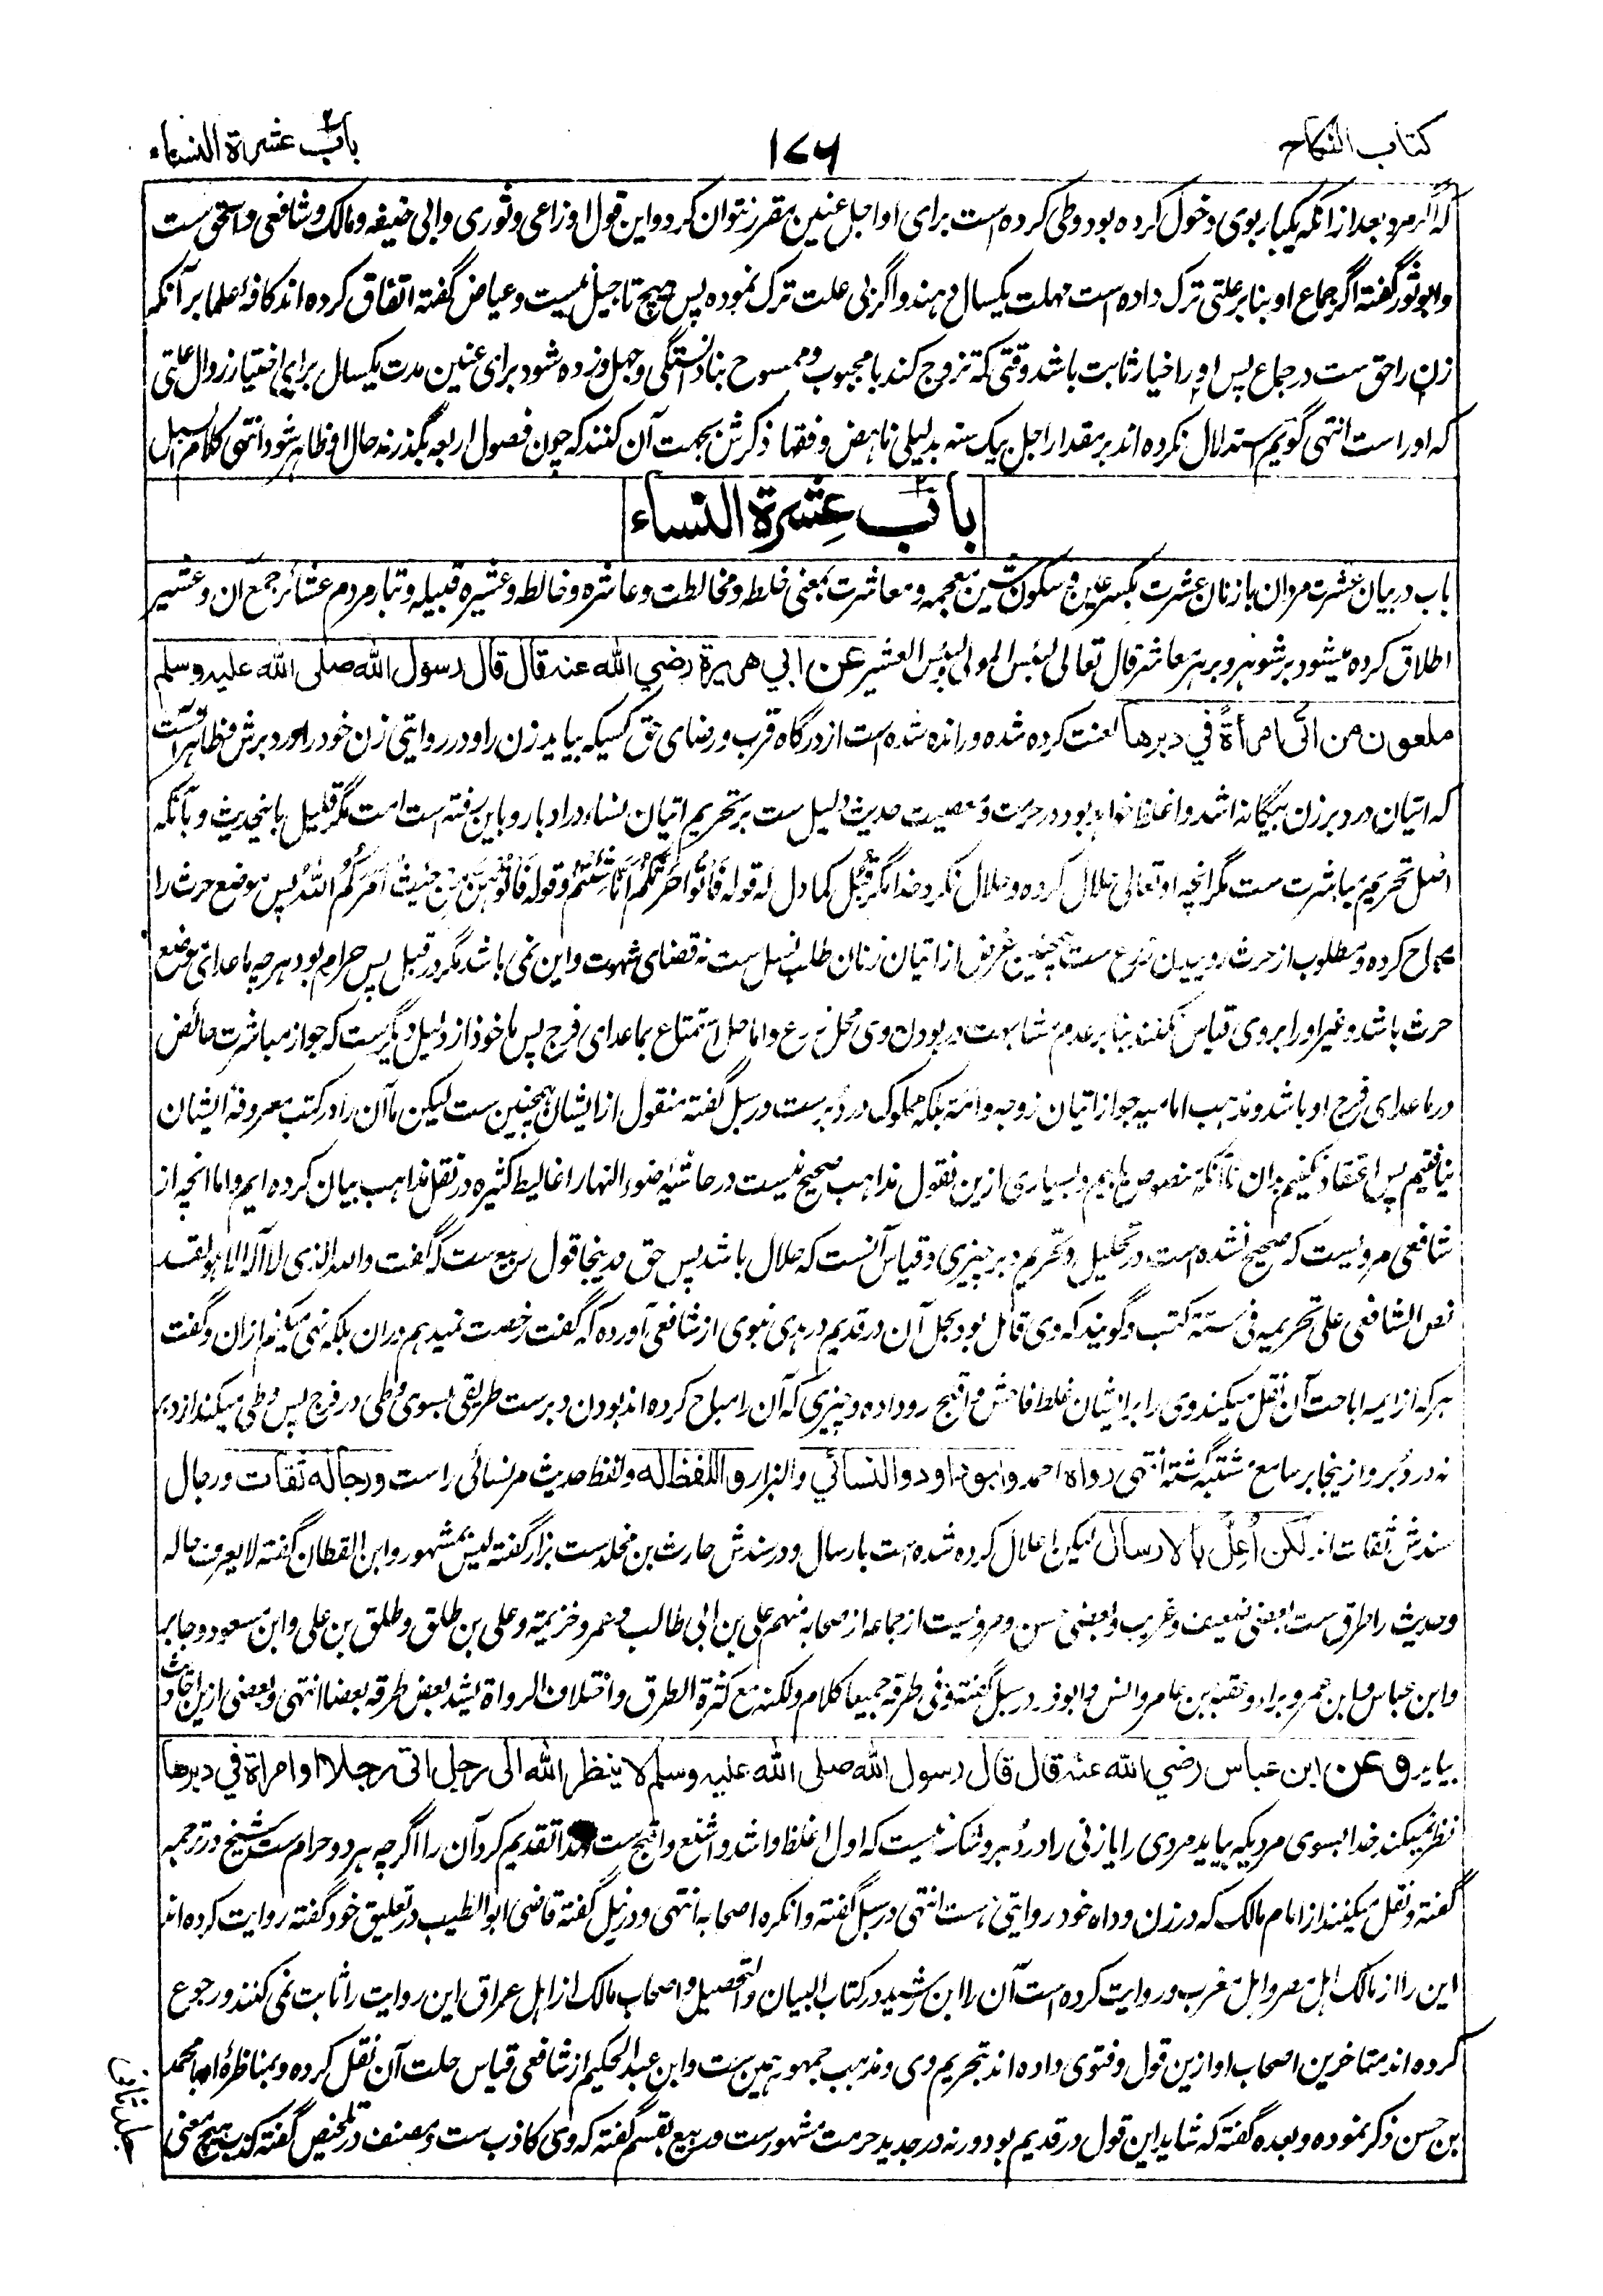 کتاب النکاح
۱۷۶
باب عشرة النساء
که اگر مرد بعد از آنکه یکبار بوی دخول کرده بود و وطی کرده است برای او اجل عنین مقرر نتوان کرد و این قول اوزاعی و ثوری و ابی حنیفه و مالک و شافعی و اسحق ست
و ابو ثور گفته اگر جماع او بنا بر علتی ترک داده است مهلت یکسال دهند و اگر بی علت ترک نموده پس هیچ تاجیل نیست و عیاض گفته اتفاق کرده اند کافهٔ علما بر آنکه
زن را حق ست در جماع پس او را خیار ثابت باشد وقتی که تزوج کند با مجبوب و ممسوح بنا دانستگی و جهل و زده شود برای عنین مدت یکسال برای اختیار زوال علتی
که اورا ست انتهی گویم استدلال نکرده اند بر مقدار اجل بیک سنه بدلیلی ناهض و فقها ذکرش بجهت آن کنند که چون فصول اربعه بگذرند حال او ظاهر شود انتهی کلام السبل
باب عِشرة النساء
باب در بیان عشرت مردان با زنان عشرت بکسر عین و سکون شین معجمه و معاشرت بمعنی خلط و مخالطت و عاشره و خالطه و عشیره قبیله و تبار مردم عشائر جمع آن و عشیر
اطلاق کرده میشود بر شوهر و بر هر معاشر قال تعالی لبئس المولی و لبئس العشیر عن ابي هريرة رضي الله عنه قال قال رسول الله صلى الله عليه وسلم
ملعون من اتى امرأةً في دبرها لعنت کرده شده و رانده شده است از درگاه قرب و رضای حق کسیکه بیاید زن را و در روایتی زن خود را در دبرش و ظاهر آنست
که اتیان در دبر زن بیگانه اشد و اغلظ خواهد بود در حرمت و معصیت حدیث دلیل ست بر تحریم اتیان نساء در ادبار و باین رفته است امت مگر قلیل باینحدیث و بآنکه
اصل تحریم مباشرت ست مگر آنچه او تعالی حلال کرده و حلال نکرد خدا مگر قُبُل کما دل له قوله فَأْتُوا حَرْثَكُمْ أَنَّىٰ شِئْتُمْ و قوله فَأْتُوهُنَّ مِنْ حَيْثُ أَمَرَكُمُ اللهُ پس موضع حرث را
مباح کرده و مطلوب از حرث روییدن زرع ست همچنین غرض از اتیان زنان طلب نسل ست نه قضای شهوت و این نمی باشد مگر در قبل پس حرام بود هر چه ماعدای موضع
حرث باشد و غیر او را بروی قیاس نکنند بنا بر عدم مشابهت در بودن وی محل زرع و اما حل استمتاع بماعدای فرج پس ماخوذ از دلیل دیگرست که جواز مباشرت حائض
در ماعدای فرج او باشد و مذهب امامیه جواز اتیان زوجه و امة بلکه مملوک در دبرست و در سبل گفته منقول از ایشان همچنین ست لیکن ما آن را در کتب معروفهٔ ایشان
نیافتیم پس اعتقاد نکنیم بدان تا آنکه منصوص یابیم و بسیاری ازین نقول مذاهب صحیح نیست در حاشیهٔ ضوء النهار اغالیط کثیره در نقل مذاهب بیان کرده ایم و اما آنچه از
شافعی مرویست که صحیح نشده است در تحلیل و تحریم دبر چیزی و قیاس آنست که حلال باشد پس حق درینجا قول ربیع ست که گفت و الله الذی لا اله الا هو لقد
نص الشافعی علی تحریمه فی ستة کتب و گویند که وی قائل بود بحل آن در قدیم در هدی نبوی از شافعی آورده که گفت رخصت نمیدهم دران بلکه نهی میکنم ازان و گفت
هر که از ایمه اباحت آن نقل میکند وی را بر ایشان غلط فاحش و اقبح رو داده و چیزی که آن را مباح کرده اند بودن دبرست طریقی بسوی وطی در فرج پس وطی میکند از دبر
نه در دُبر و از ینجا بر سامع مشتبه گشته انتهی رواه احمد وابو داود والنسائي والبزار و اللفظ له ولفظ حدیث مر نسائی راست ورجاله ثقات ورجال
سندش ثقات اند لكن اُعِلَّ بالارسال لیکن اعلال کرده شده است بارسال و در سندش حارث بن مخلدست بزار گفته لیس بمشهور و ابن القطان گفته لا یعرف حاله
و حدیث را طرق ست بعضی ضعیف و غریب و بعضی حسن و مرویست از جماعه از صحابه منهم علی بن ابی طالب و عمر و خزیمة و علی بن طلق و طلق بن علی و ابن مسعود و جابر
و ابن عباس و ابن عمر و براء و عقبه بن عامر و انس و ابوذر در سبل گفته و فی طرقه جمیعا کلام ولکنه مع کثرة الطرق و اختلاف الرواة یشد بعض طرقه بعضا انتهی و بعضی ازین احادیث
بیاید وعن ابن عباس رضي الله عنه قال قال رسول الله صلى الله عليه وسلم لا ينظر الله الى رجل اتى رجلا او امرأة في دبرها
نظر نمیکند خدا بسوی مردیکه بیاید مردی را یا زنی را در دُبر و شک نیست که اول اغلظ و اشد و اشنع و اقبح ست لهذا تقدیم کرد آن را اگر چه هر دو حرام ست شیخ در ترجمه
گفته و نقل میکنند از امام مالک که در زن و داه خود روایتی هست انتهی در سبل گفته و انکره اصحابه انتهی و در نیل گفته قاضی ابو الطیب در تعلیق خود گفته روایت کرده اند
این را از مالک اهل مصر و اهل مغرب و روایت کرده است آن را ابن رشید در کتاب البیان و التحصیل و اصحاب مالک از اهل عراق این روایت را ثابت نمی کنند و رجوع
کرده اند متاخرین اصحاب او ازین قول و فتوی داده اند بتحریم وی و مذهب جمهور همین ست و ابن عبد الحکیم از شافعی قیاس حلت آن نقل کرده و بمناظرهٔ او با محمد
بن حسن ذکر نموده و بعده گفته که شاید این قول در قدیم بود ورنه در جدید حرمت مشهورست و ربیع بقسم گفته که وی کاذب ست و مصنف در تلخیص گفته که تکذیب هیچ معنی
جلد ثانی